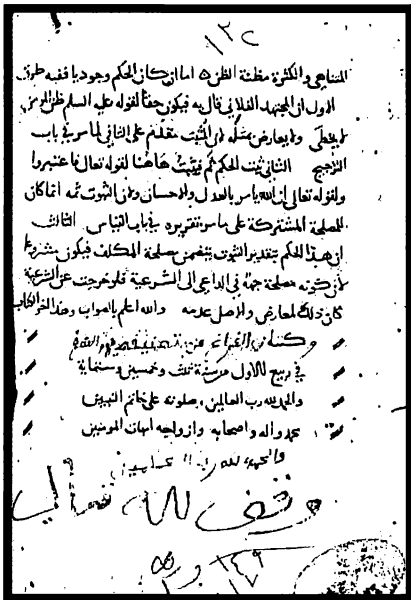 ١٣٢
المتناهي والكثرة مظنة الظن اما ان كان الحكم وجوديا ففيه طرق
الاول ان المجتهد الفلاني قال به فيكون حقا لقوله عليه السلم ظن المومن
لا يخطي ولا يعارض بمثله لان المثبت مقدم على الثاني لما مر في باب
الترجيح الثاني ثبت الحكم ثم فيثبت هاهنا لقوله تعالى فاعتبروا
ولقوله تعالى ان الله يامر بالعدل والاحسان ولان الثبوت ثمه انما كان
للمصلحة المشتركة على ما مر تقريره في باب القياس الثالث
ان هذا الحكم بتقدير الثبوت يتضمن مصلحة المكلف فيكون مشروعا
لان كونه مصلحة جهة في الداعي الى الشرعية فلو خرجت عن الشرعية
كان ذلك لمعارض والاصل عدمه والله اعلم بالصواب وهذا اخر الكتاب
وكان الفراغ من
في ربيع الاول من سنة ثلث وخمسين وستماية
والحمد لله رب العالمين وصلوته على خاتم النبيين
محمد واله واصحابه وازواجه امهات المومنين
والحمد لله رب العالمين
وقف لله تعالى
١٤٩
١٧